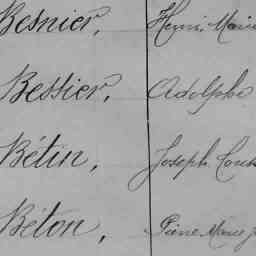 Besnier, Henri, Marie
Bessier, Adolphe
Bétin, Joseph Louis
Béton, Pierre Marie J